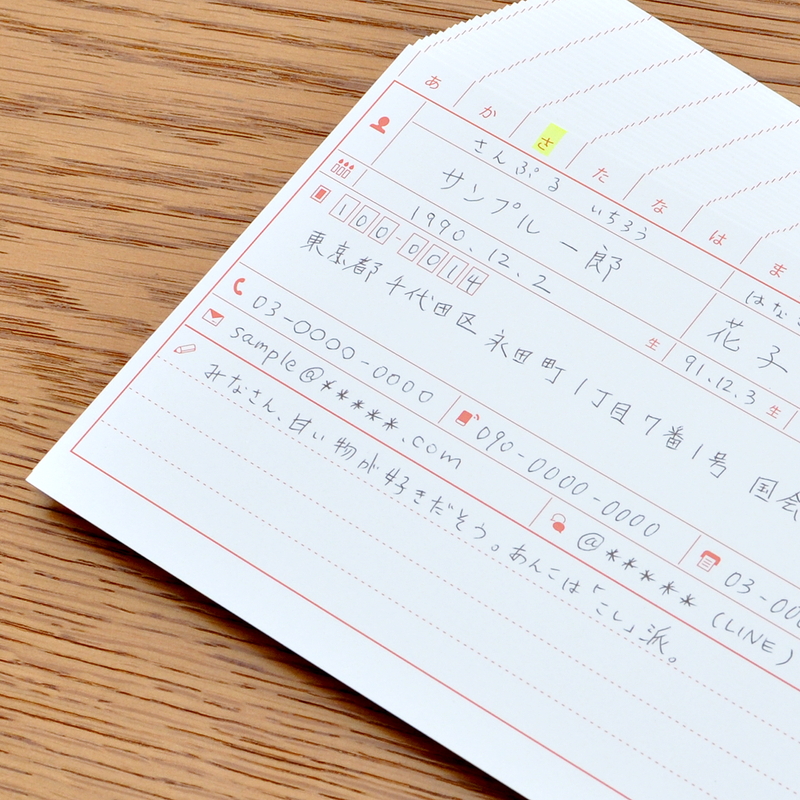 あ か さ た な は ま
さんぷる いちろう はな
サンプル 一郎 花子
1990.12.2 生 91.12.3 生
100-0014
東京都 千代田区 永田町 1丁目7番1号 国会
03-0000-0000 090-0000-0000 03-00
sample@*****.com @***** (LINE)
みなさん、甘い物が好きだそう。あんこは「こし」派。